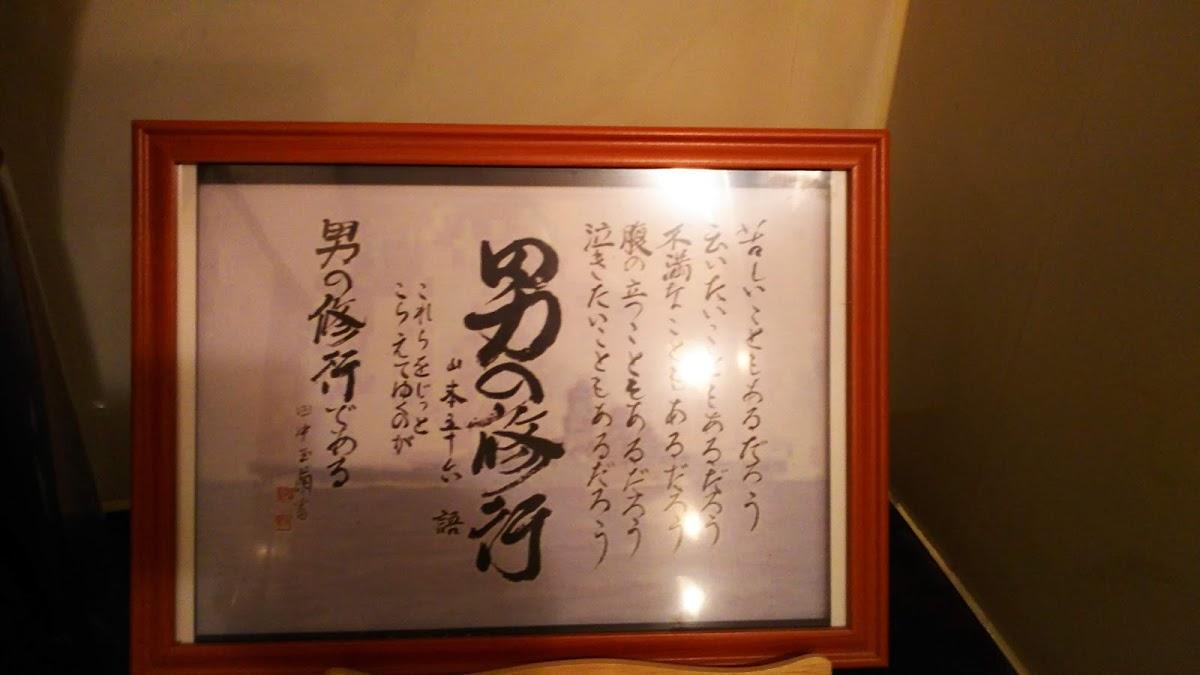 苦しいこともあるだろう
云いたいこともあるだろう
不満なこともあるだろう
腹の立つこともあるだろう
泣きたいこともあるだろう
男の修行
山本五十六 語
これらをじっと
こらえてゆくのが
男の修行である
田中玉蘭書